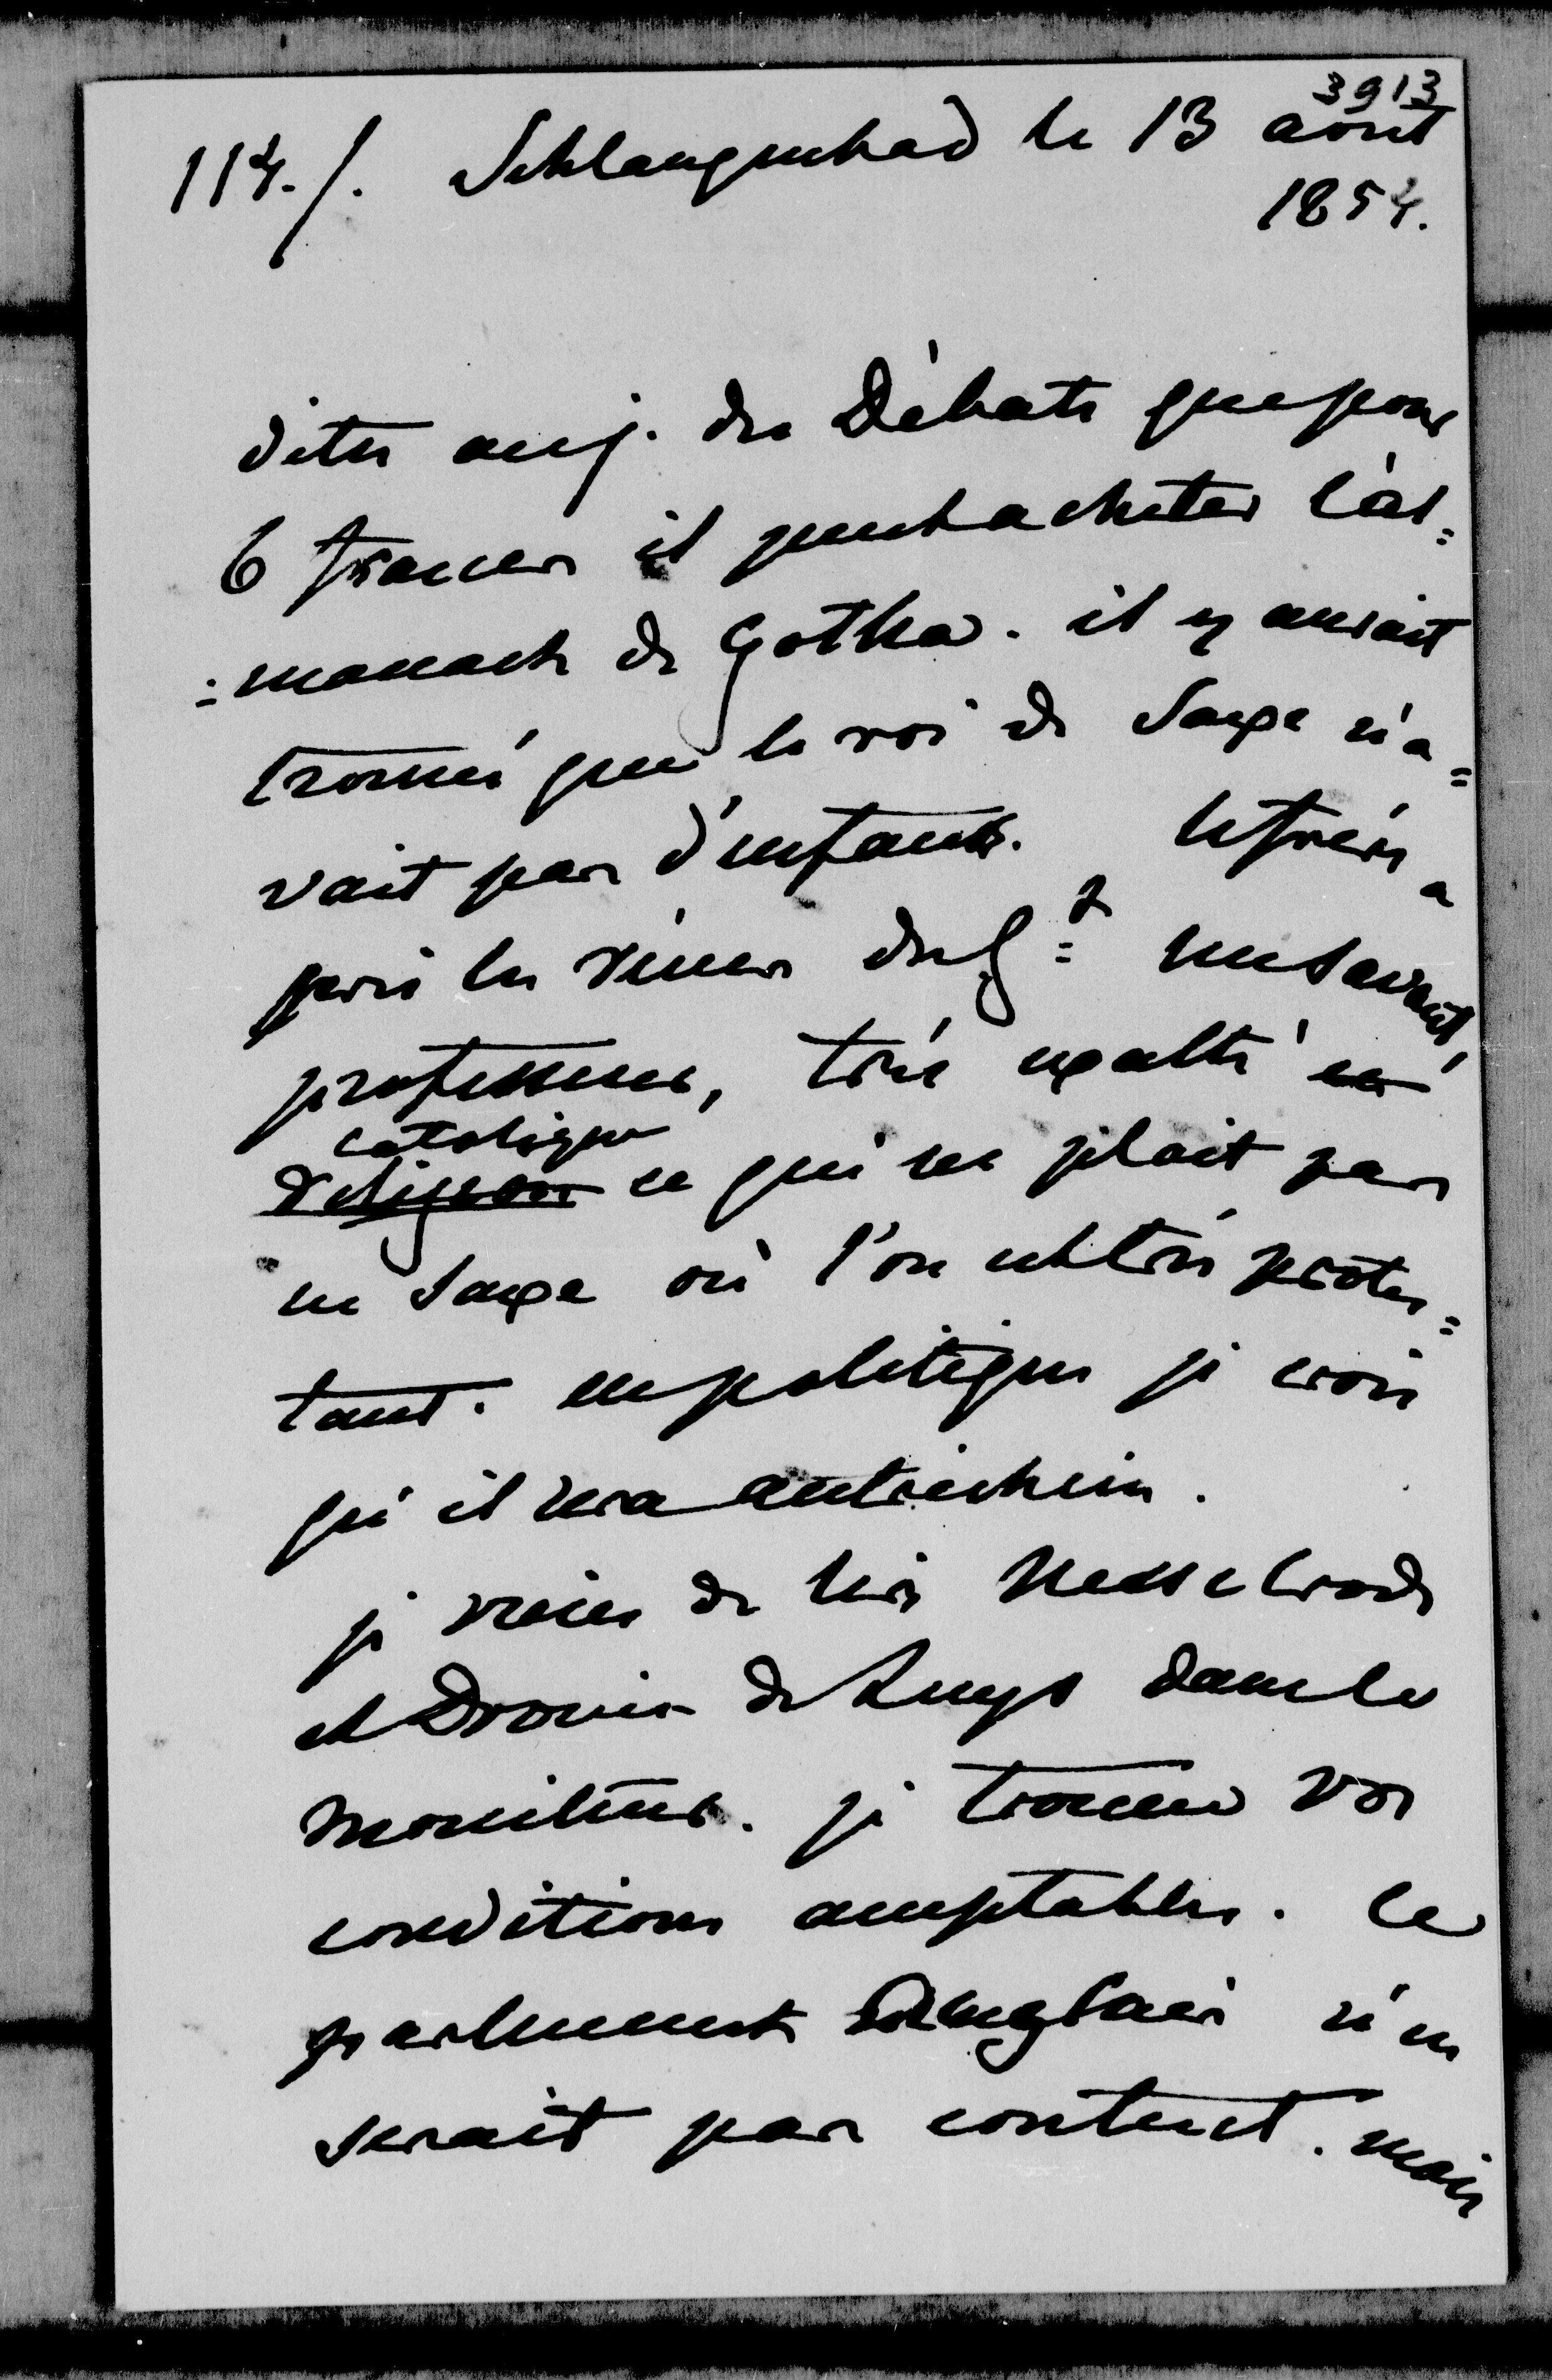 3913
114./. Schlangenbad le 13 août
1854.
dites au j. des Débats que pour
6 francs il peut acheter l'al=
=manach de Gotha. il y aurait
trouvé que le roi de Saxe n'a=
vait pas d'enfants. le frère a
pris les rênes du g=t un savant,
professeur, très exalté en
catolique
religion ce qui ne plait pas
en Saxe où l'on est très protes=
tant. en politique je crois
qu'il sera autrichien.
je viens de lire Nesselrode
et Drouin de Lhuys dans le
moniteur. je trouve vos
conditions acceptables. le
parlement Anglais n'en
serait pas content. mais